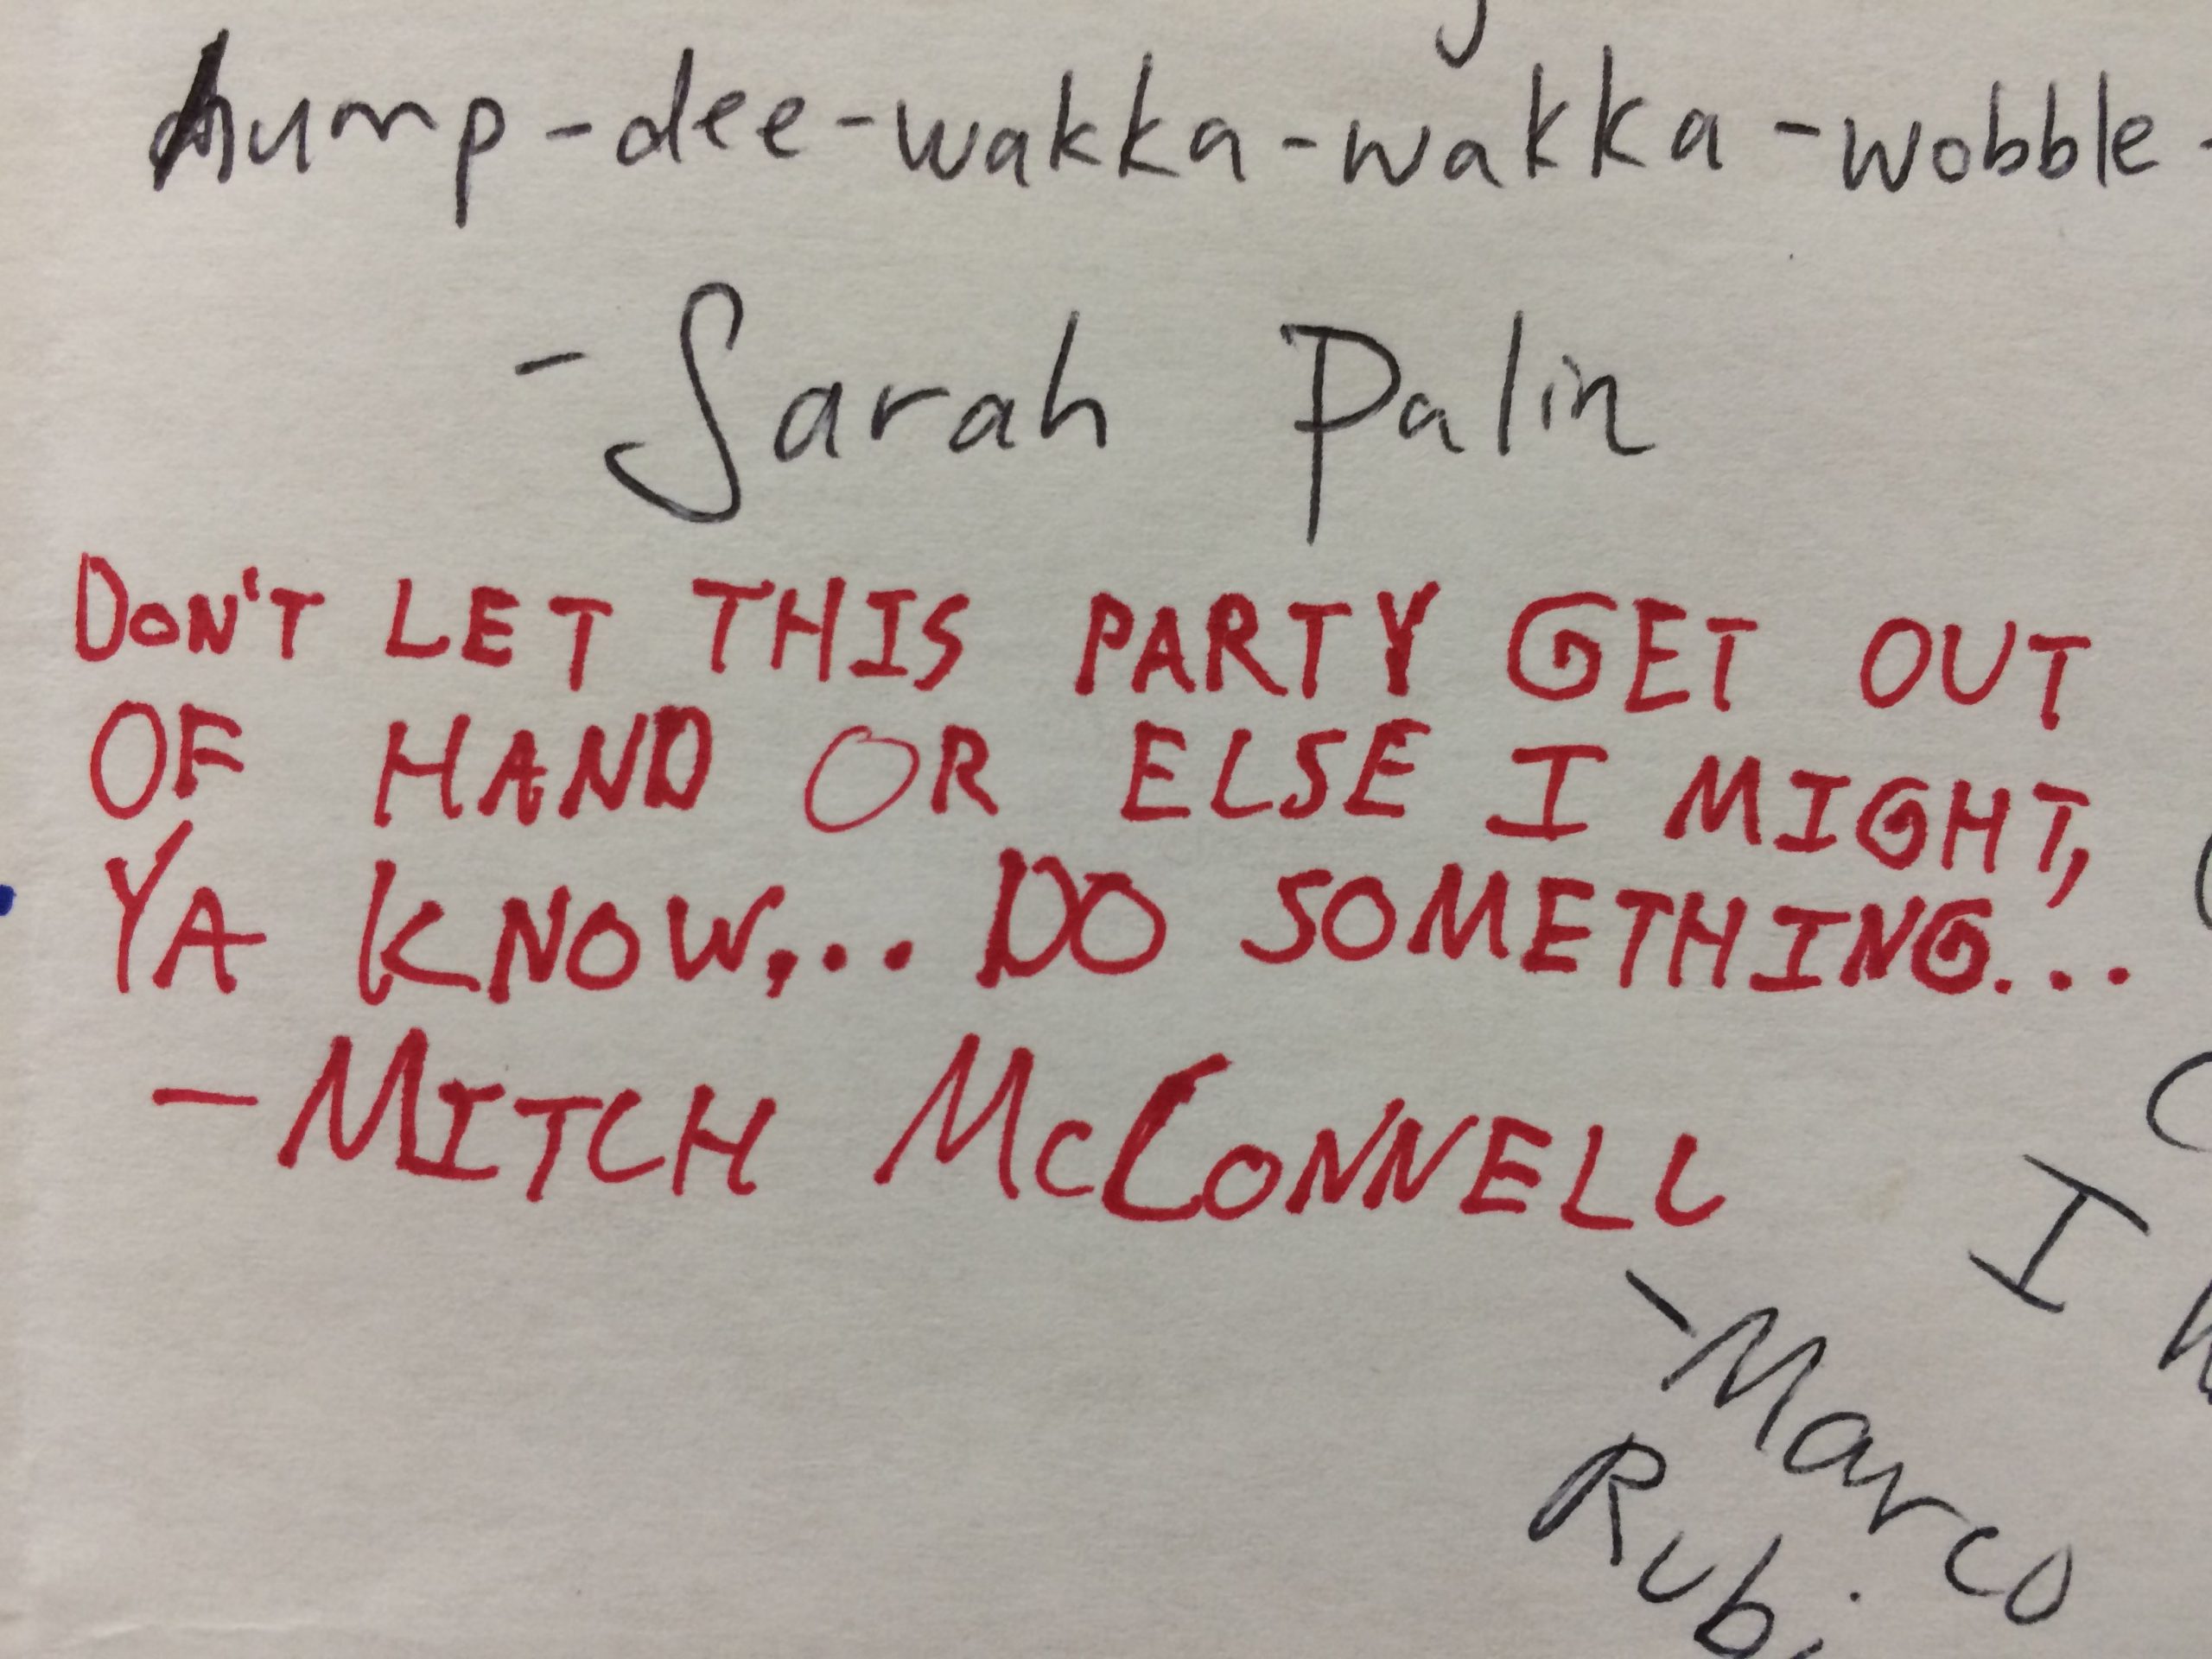 hump-dee-wakka-wakka-wobble-
-Sarah Palin
DON'T LET THIS PARTY GET OUT
OF HAND OR ELSE I MIGHT,
YA KNOW,... DO SOMETHING...
-MITCH McCONNELL
I
-Marco
Rubi